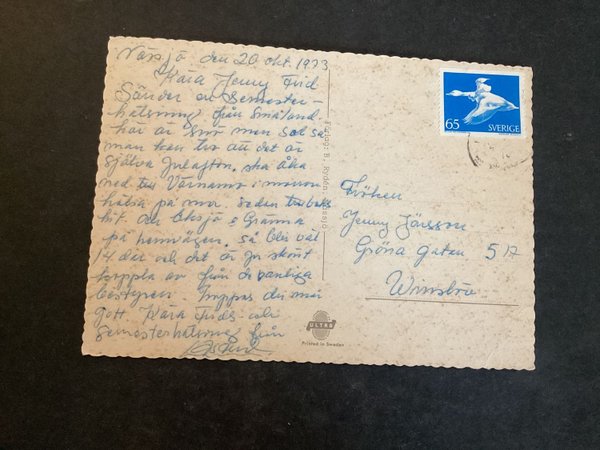 Nässjö den 20 okt. 1973
Kära Jenny Frid
Sänder en semester-
hälsning från Småland.
här är snör men sol så
man kan tro att det är
själva julafton, ska åka
ned till Värnamo i morron
hälsa på mor. sedan
hit och Eksjö & Gränna
på hemvägen. så blir väl
14 dar och det är ju skönt
koppla av från de vanliga
bestyren. hoppas du mår
gott. Kära Frids och
semesterhälsning från
Förlag: B. Rydén, Nässjö
65 SVERIGE
Fröken
Jenny Jönsson
Gröna gatan 5
Winslöv
ULTRA
Printed in Sweden